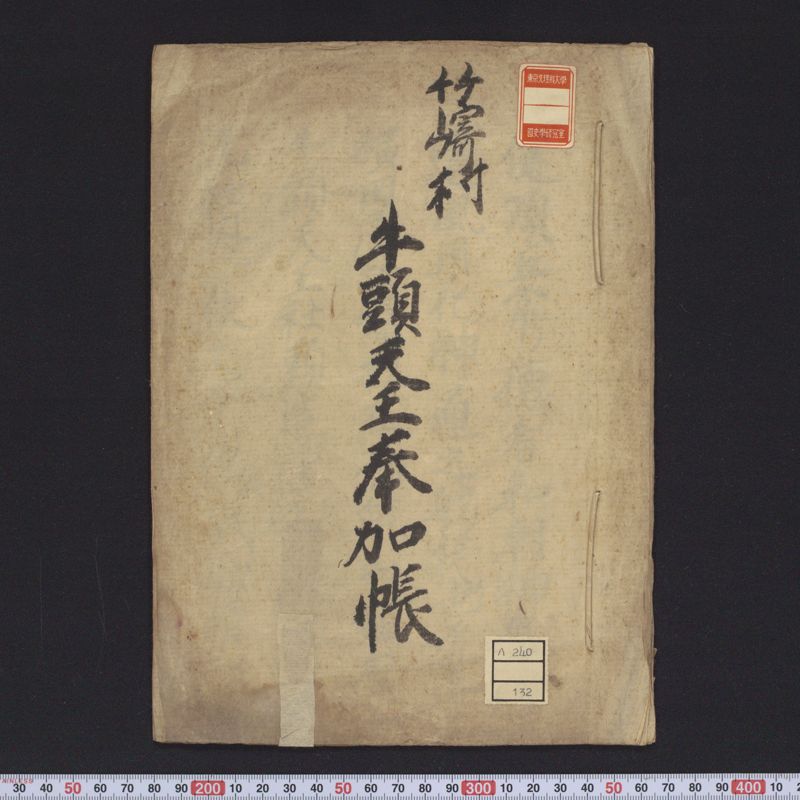 竹崎村
牛頭天王奉加帳
東京文理科大学
国史学研究室
A 240
132
30 40 50 60 70 80 90 200 10 20 30 40 50 60 70 80 90 300 10 20 30 40 50 60 70 80 90 400 10